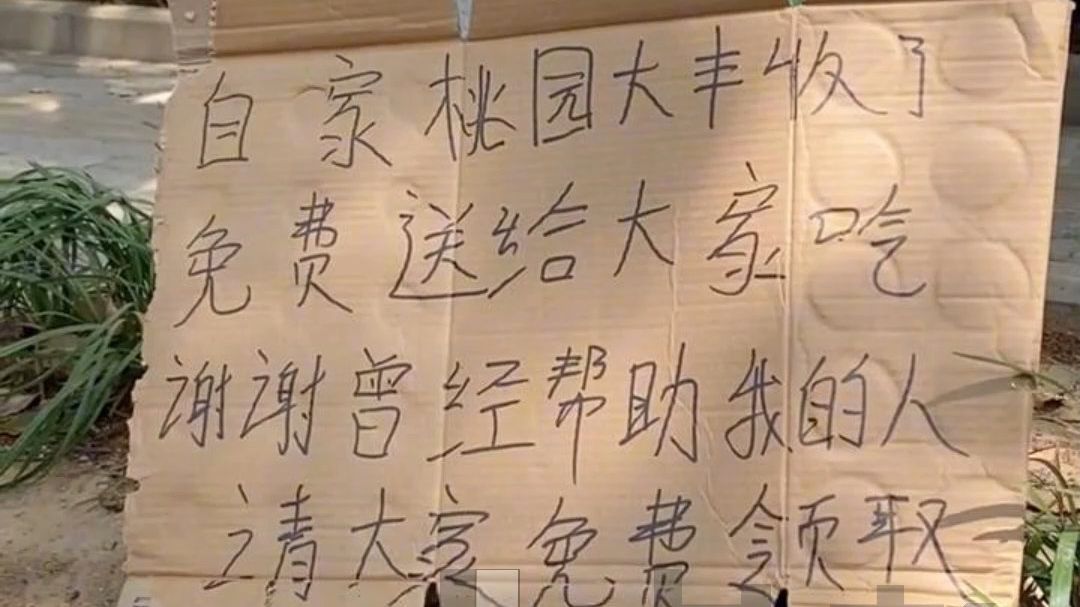 自家桃园大丰收了
免费送给大家吃
谢谢曾经帮助我的人
请大家免费领取